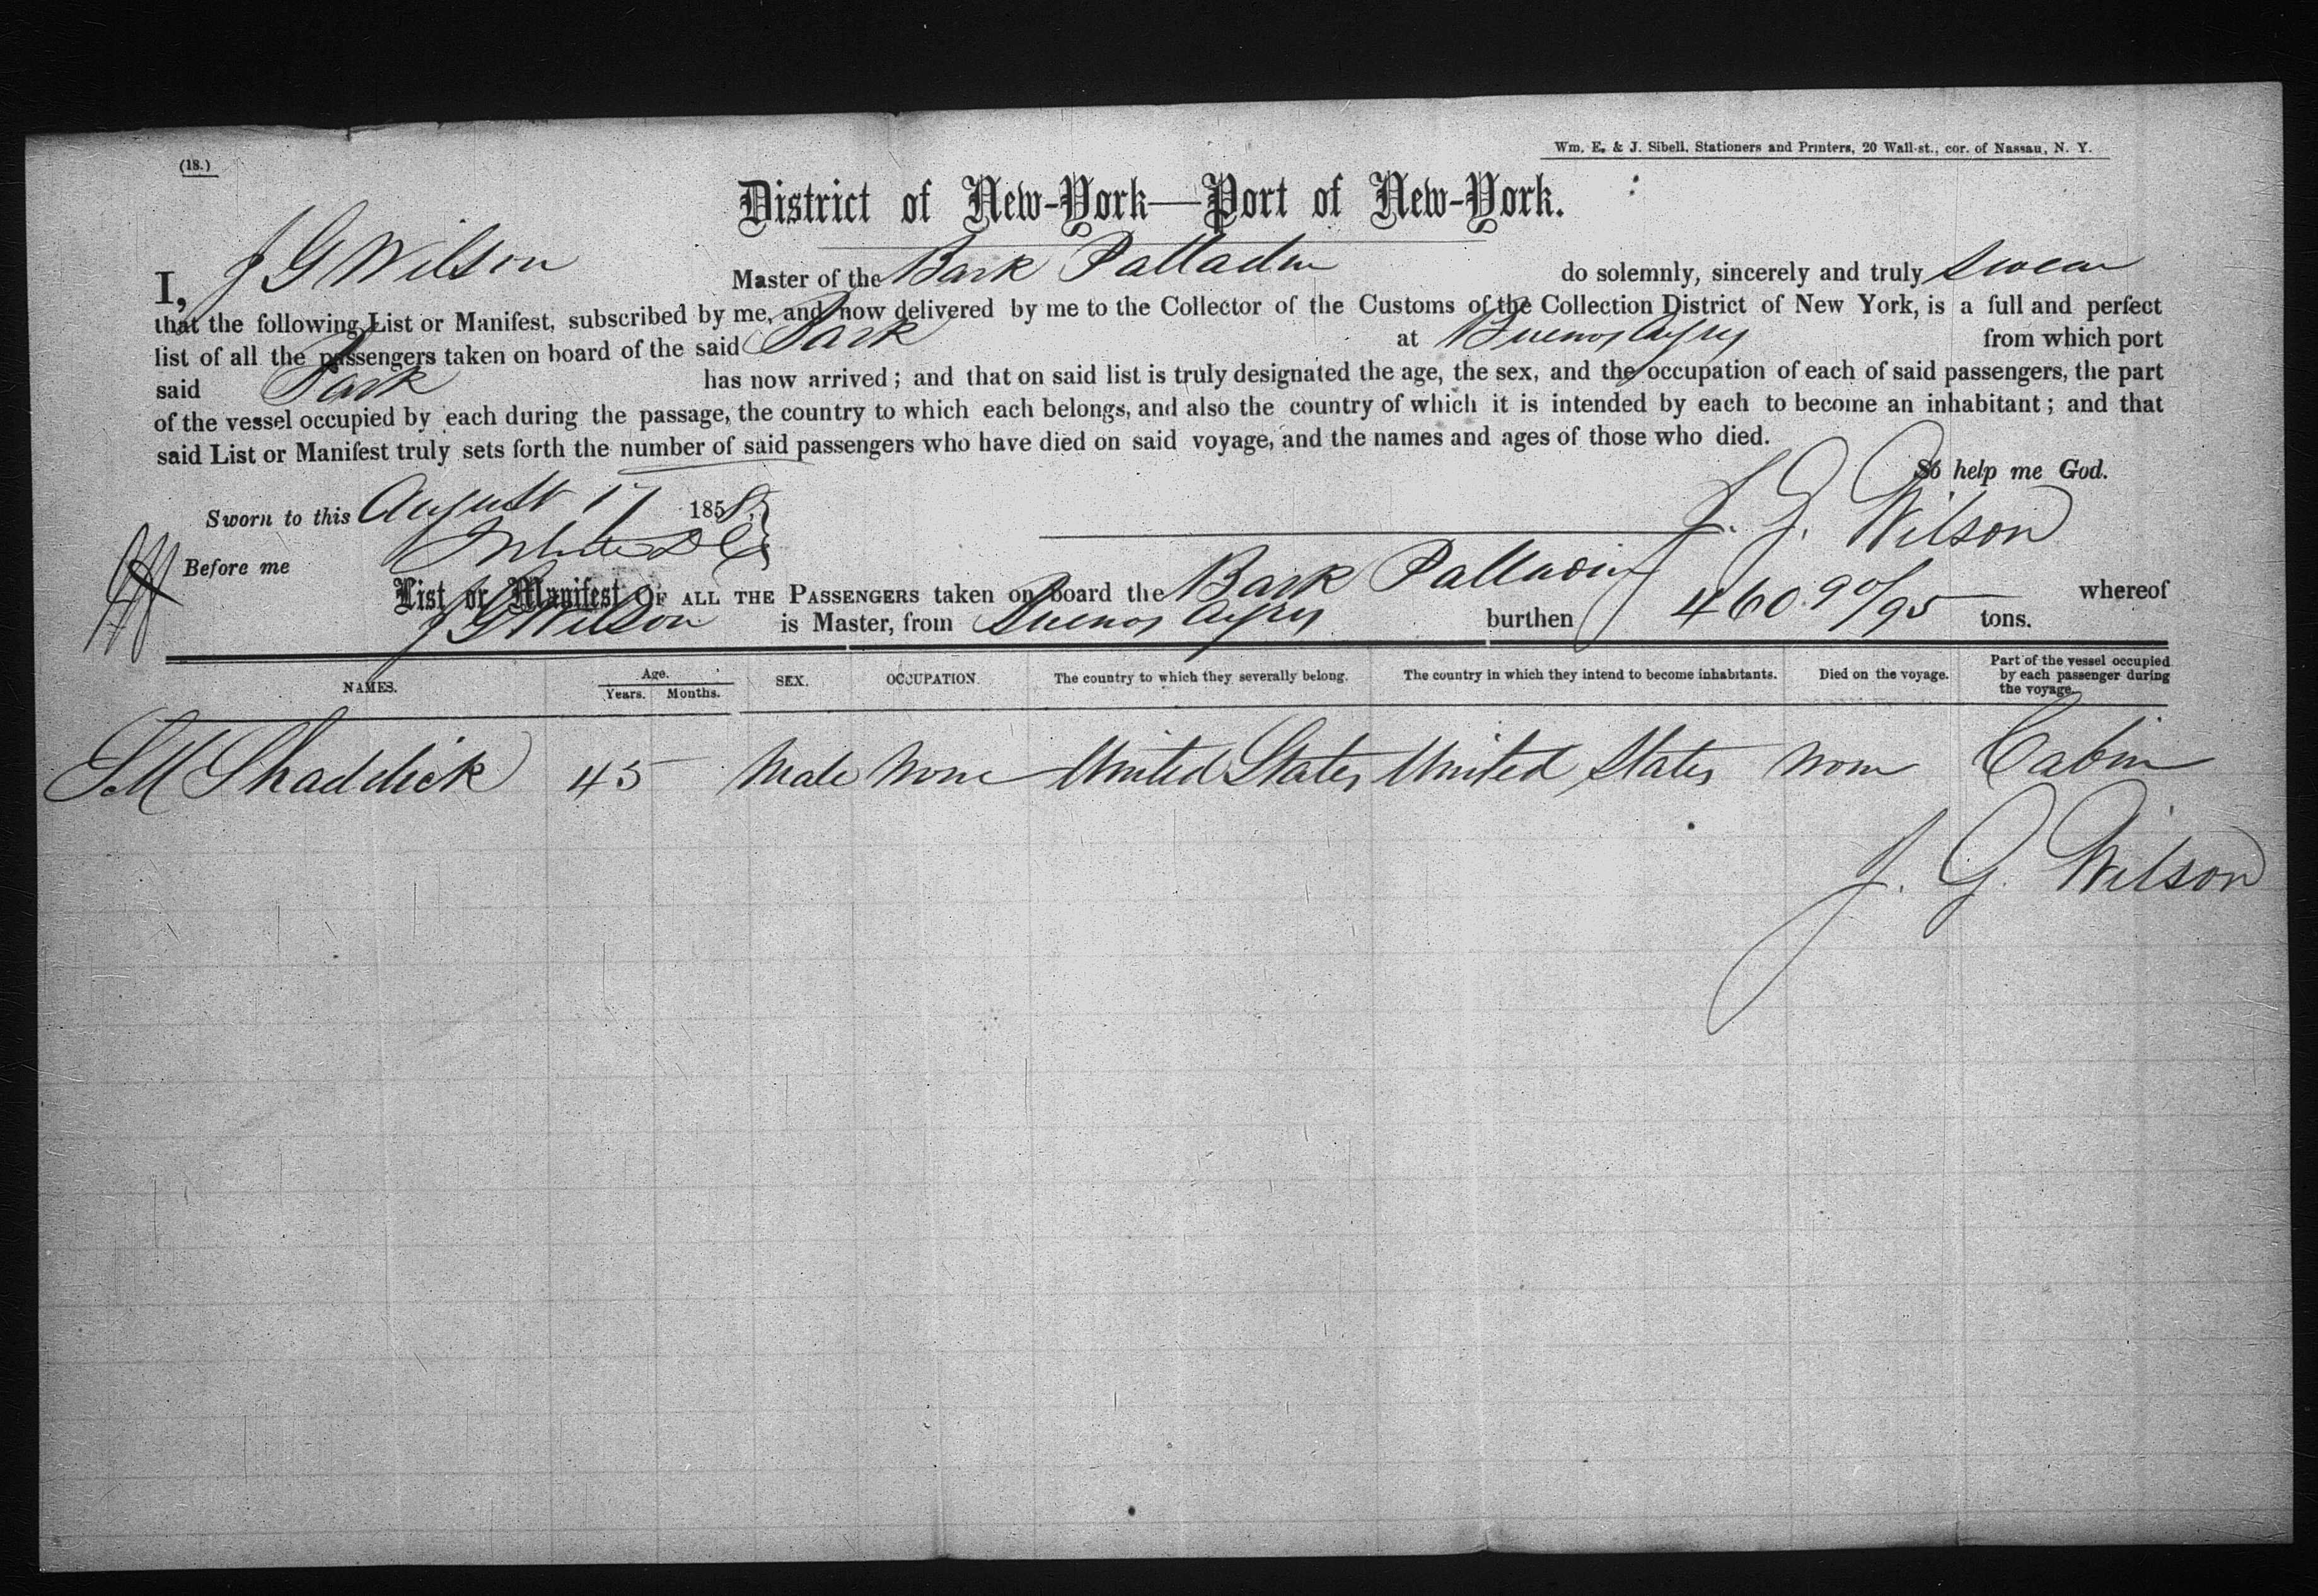 (18.)
Wm. E. & J. Sibell, Stationers and Printers, 20 Wall-st., cor. of Nassau, N. Y.
District of New-York—Port of New-York.
I, J G Wilson Master of the Bark Palladin do solemnly, sincerely and truly swear
that the following List or Manifest, subscribed by me, and now delivered by me to the Collector of the Customs of the Collection District of New York, is a full and perfect
list of all the passengers taken on board of the said Bark at Buenos Ayres from which port
said Bark has now arrived; and that on said list is truly designated the age, the sex, and the occupation of each of said passengers, the part
of the vessel occupied by each during the passage, the country to which each belongs, and also the country of which it is intended by each to become an inhabitant; and that
said List or Manifest truly sets forth the number of said passengers who have died on said voyage, and the names and ages of those who died.
So help me God.
Sworn to this August 17 1858. J. G. Wilson
Before me
List or Manifest OF ALL THE PASSENGERS taken on board the Bark Palladin whereof
J G Wilson is Master, from Buenos Ayres burthen 460 90/95 tons.
NAMES. Age. Years. Months. SEX. OCCUPATION. The country to which they severally belong. The country in which they intend to become inhabitants. Died on the voyage. Part of the vessel occupied by each passenger during the voyage.
Shaddick 45 Male None United States United States None Cabin
J. G. Wilson